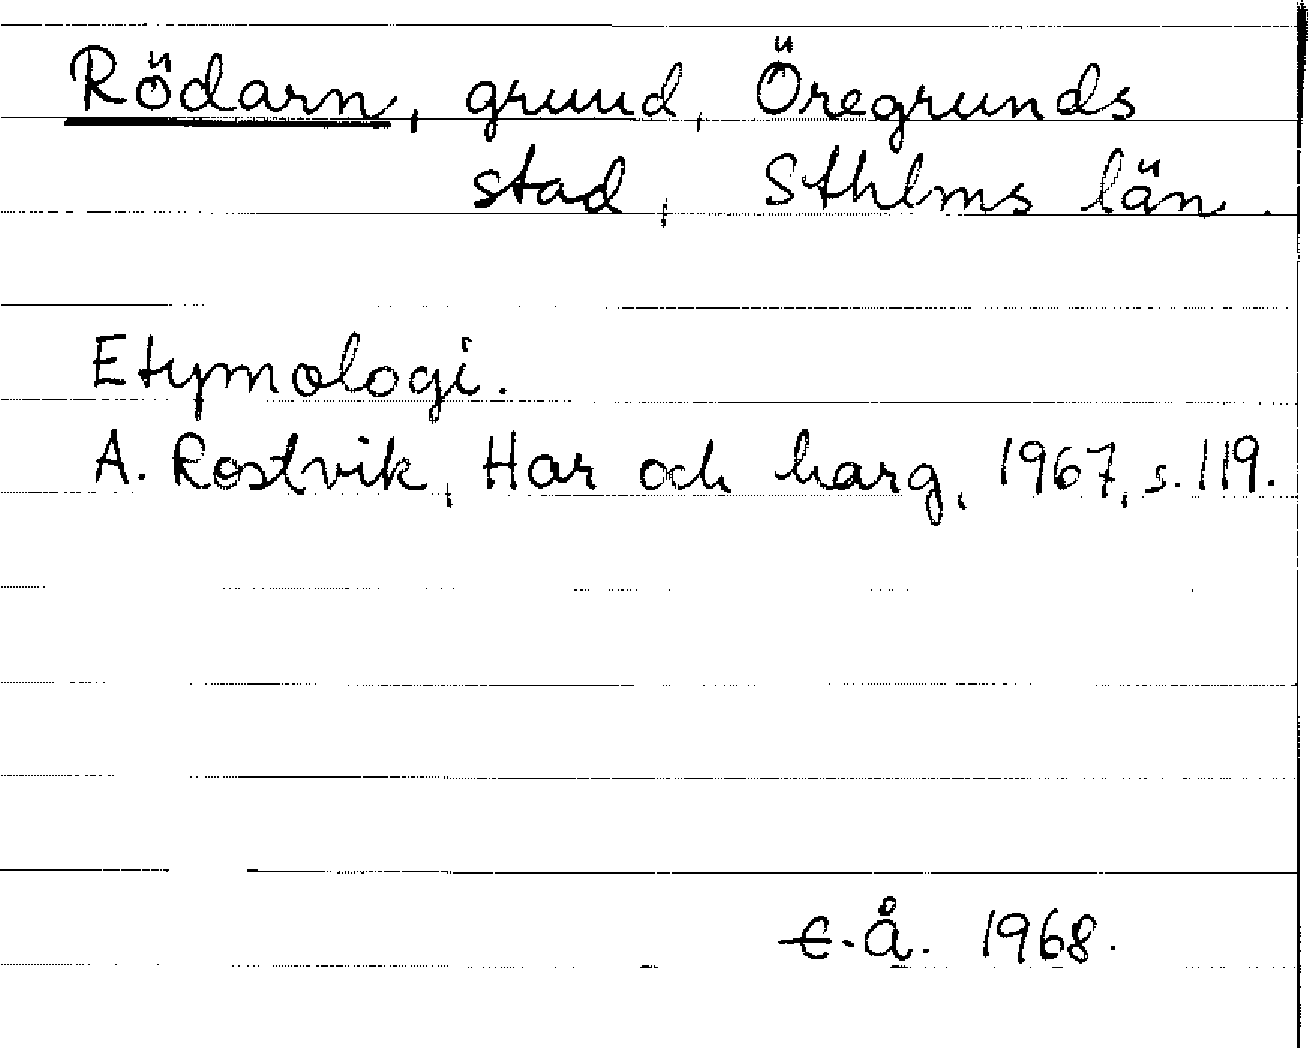 Rödarn, grund, Öregrunds
stad, Sthlms län.
Etymologi.
A. Rostvik, Har och harg, 1967, s. 119.
E.Å. 1968.